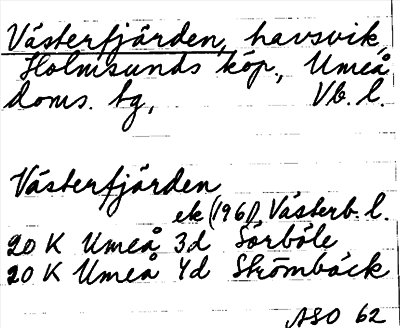 Västerfjärden, havsvik,
Holmsunds köp., Umeå
doms. tg, Vb. l.
Västerfjärden
ek (1961) Västerb. l.
20 K Umeå 3d Sörböle
20 K Umeå 4d Strömbäck
ASO 62